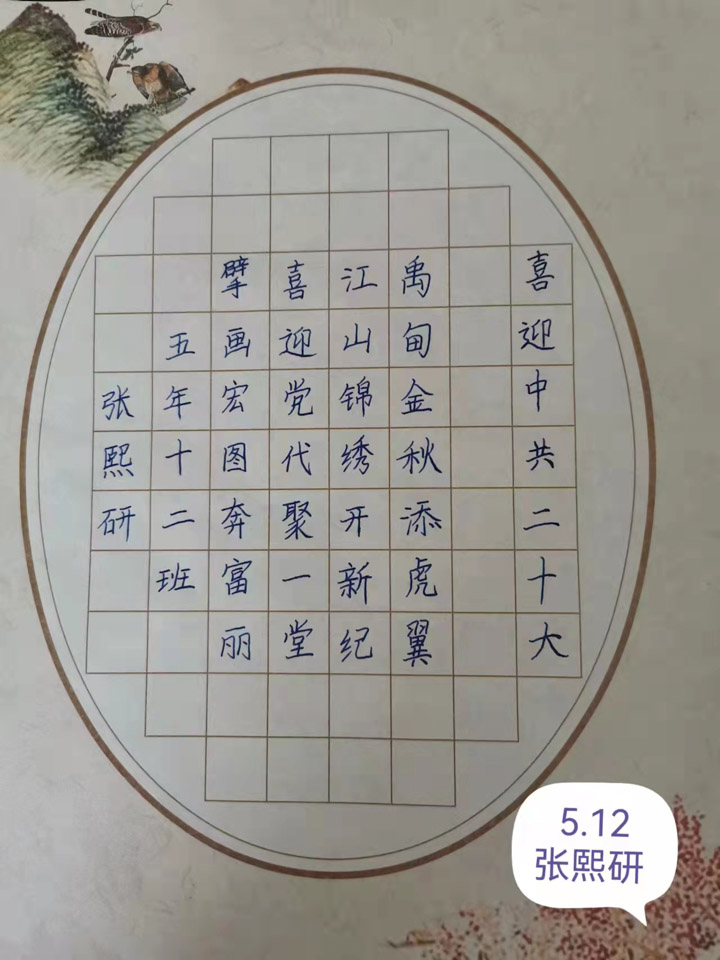 喜迎中共二十大
禹甸金秋添虎翼
江山锦绣开新纪
喜迎党代聚一堂
擘画宏图奔富丽
五年十二班
张熙研
5.12
张熙研